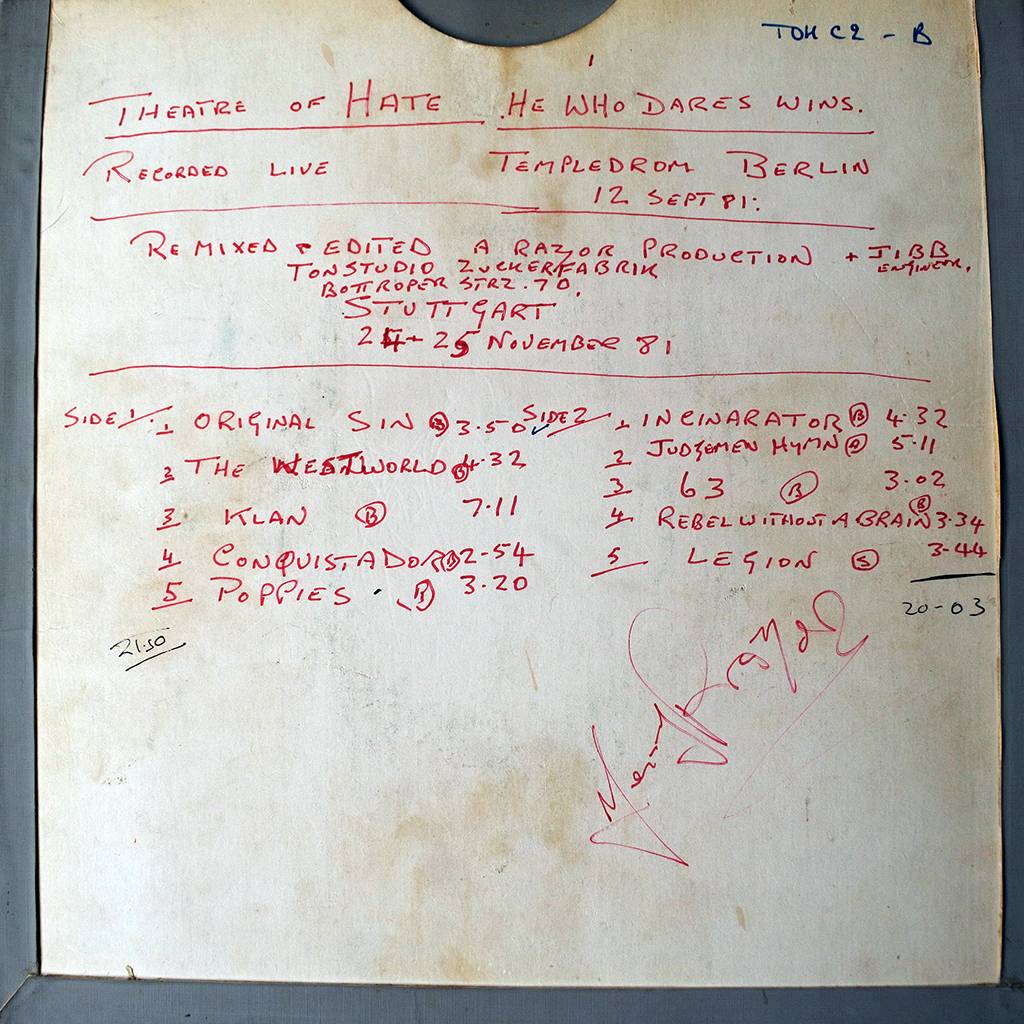 TOH C2 - B
THEATRE OF HATE HE WHO DARES WINS.
RECORDED LIVE TEMPLEDROM BERLIN
12 SEPT 81.
REMIXED + EDITED A RAZOR PRODUCTION + JIBB
ENGINEER.
TONSTUDIO ZUCKERFABRIK
BOTTROPER STRZ. 70.
STUTTGART
24-25 NOVEMBER 81
SIDE 1 1 ORIGINAL SIN B 3.50
2 THE WESTWORLD B 4.32
3 KLAN B 7.11
4 CONQUISTADOR B 2-54
5 POPPIES. B 3.20
21.50
SIDE 2 1 INCINARATOR B 4.32
2 JUDGEMEN HYMN B 5.11
3 63 B 3.02
4 REBEL WITHOUT A BRAIN B 3.34
5 LEGION S 3-44
20-03